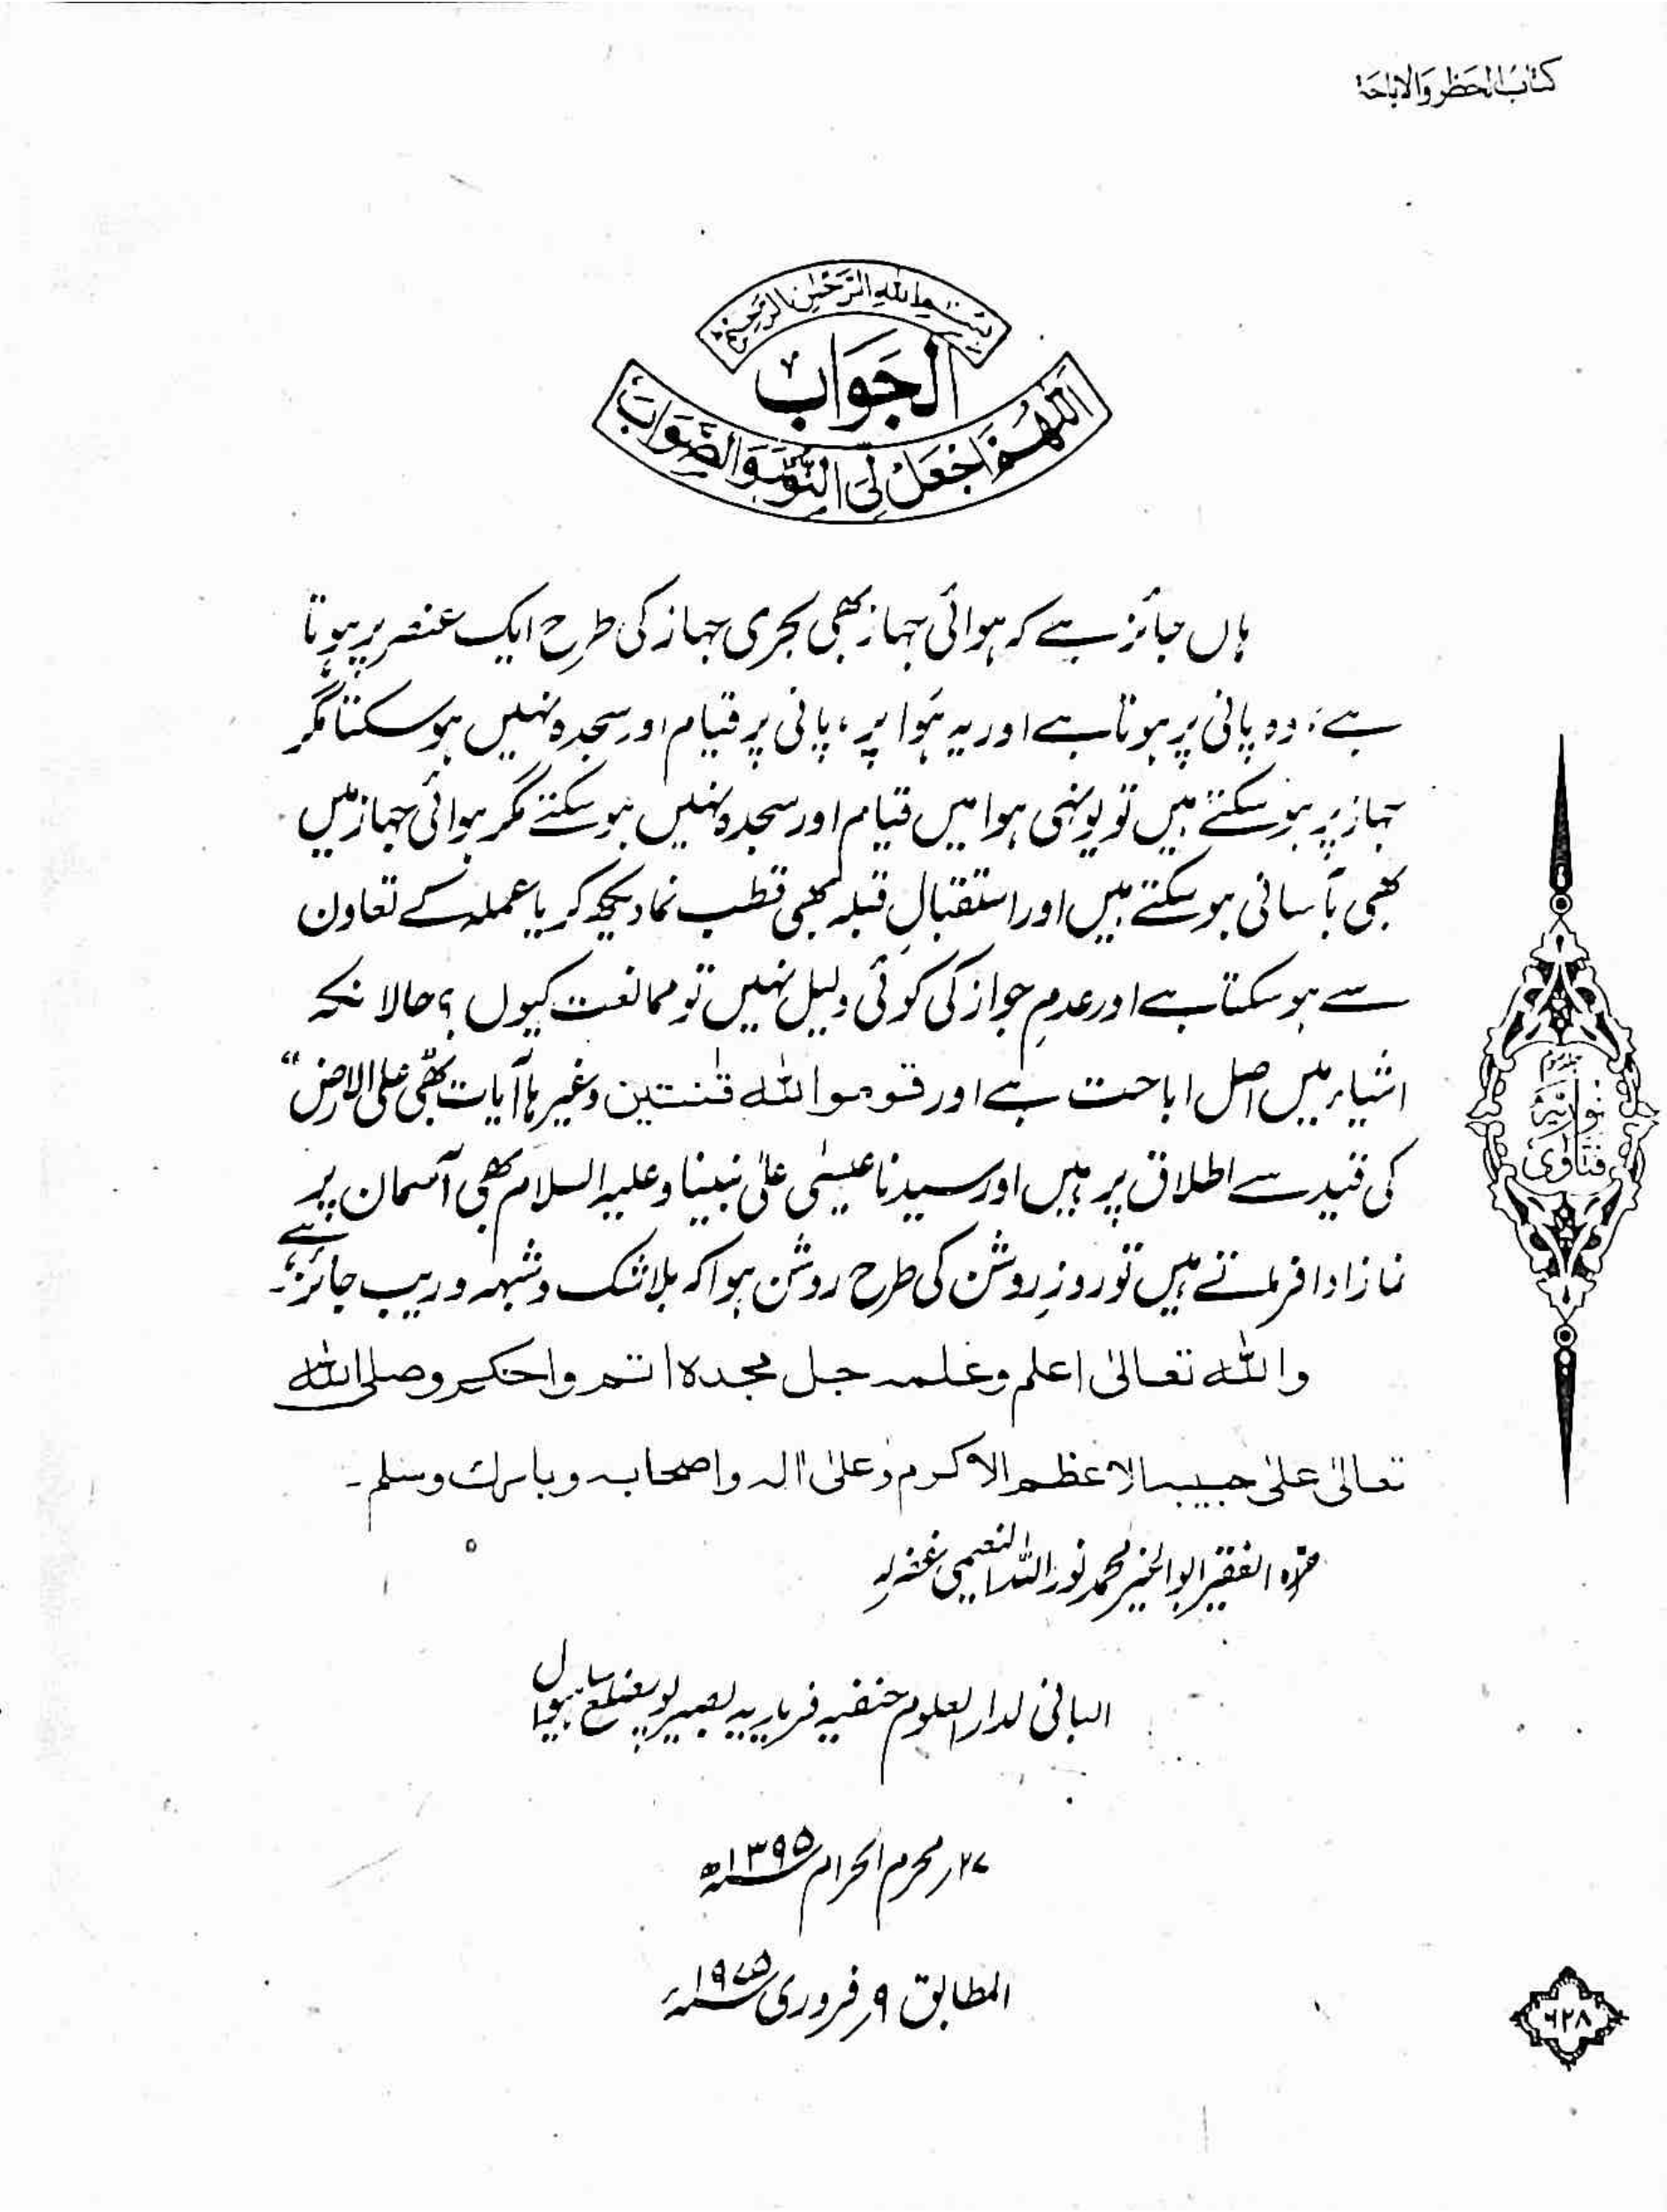 کتاب الحظر والاباحۃ
بِسْمِ اللهِ الرَّحْمٰنِ الرَّحِيْمِ
اَلجَوَاب
اَللّٰهُمَّ اجْعَلْ لِیَ النُّوْرَ وَالصَّوَابَ
ہاں جائز ہے کہ ہوائی جہاز بھی بحری جہاز کی طرح ایک عنصر پر ہوتا
ہے، وہ پانی پر ہوتا ہے اور یہ ہَوا پر، پانی پر قیام اور سجدہ نہیں ہو سکتا مگر
جہاز پر ہو سکتے ہیں تو یونہی ہوا میں قیام اور سجدہ نہیں ہو سکتے مگر ہوائی جہاز میں
بھی بآسانی ہو سکتے ہیں اور استقبالِ قبلہ بھی قطب نما دیکھ کر یا عملہ کے تعاون
سے ہو سکتا ہے اور عدمِ جواز کی کوئی دلیل نہیں تو ممانعت کیوں؟ حالانکہ
اشیاء میں اصل اباحت ہے اور قوموا للہ قٰنتین وغیرہا آیات بھی علی الارض“
کی قید سے اطلاق پر ہیں اور سیدنا عیسٰی علیٰ نبینا وعلیہ السلام بھی آسمان پر
نماز ادا فرماتے ہیں تو روزِ روشن کی طرح روشن ہوا کہ بلا شک و شبہہ و ریب جائز ہے۔
واللہ تعالیٰ اعلم وعلمہ جل مجدہ اتم واحکم وصلی اللہ
تعالیٰ علیٰ حبیبہ الاعظم الاکرم وعلیٰ اٰلہ واصحابہ وبارك وسلم۔
حررہ الفقیر ابوالخیر محمد نور اللہ النعیمی غفرلہ
البانی لدار العلوم حنفیہ فریدیہ بصیرپور ضلع ساہیوال
۲۷ر محرم الحرام ۱۳۹۵ھ
المطابق ۹ر فروری ۱۹۷۵ء
فتاوٰی نوریہ
۶۲۸